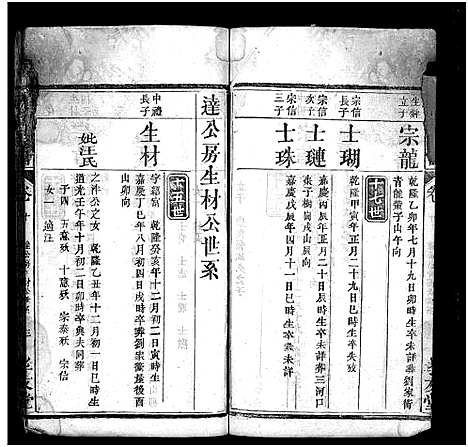 生材
立子
宗龍
乾隆乙卯年七月十九日亥時生卒未詳葬劉家衝
青龍嘴子山午向
十七世
宗信
長子
士瑚
乾隆甲寅年正月二十九日巳時生卒失攷
宗信
次子
士璉
嘉慶丙辰年正月二十日辰時生卒未詳葬三河口
張子樹崗戌山辰向
宗信
三子
士珠
嘉慶戊辰年四月十一日巳時生卒葬未詳
達公房生材公世系
十五世
申禮
長子
生材
乾隆癸亥年十二月初二日寅時生
嘉慶丁巳年八月初四日戌時卒葬劉家衝老屋後酉
山卯向
妣汪氏
之沣公之女 乾隆乙丑年十二月初一日巳時生
道光壬午年十月初二日卯時卒與夫同葬
子四 五意殀 十意殀 宗泰殀 宗信
女一 適汪
孝友堂